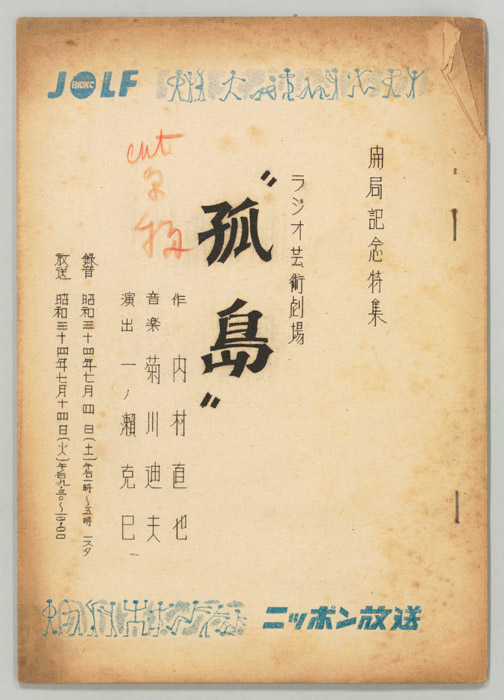 JOLF
開局記念特集
ラジオ芸術劇場
"孤島"
作 内村直也
音楽 菊川迪夫
演出 一ノ瀬克巳
録音 昭和三十四年七月四日(土)午后一時〜五時 一スタ
放送 昭和三十四年七月十四日(火)午后九・三〇〜一〇・〇〇
cut
ニッポン放送